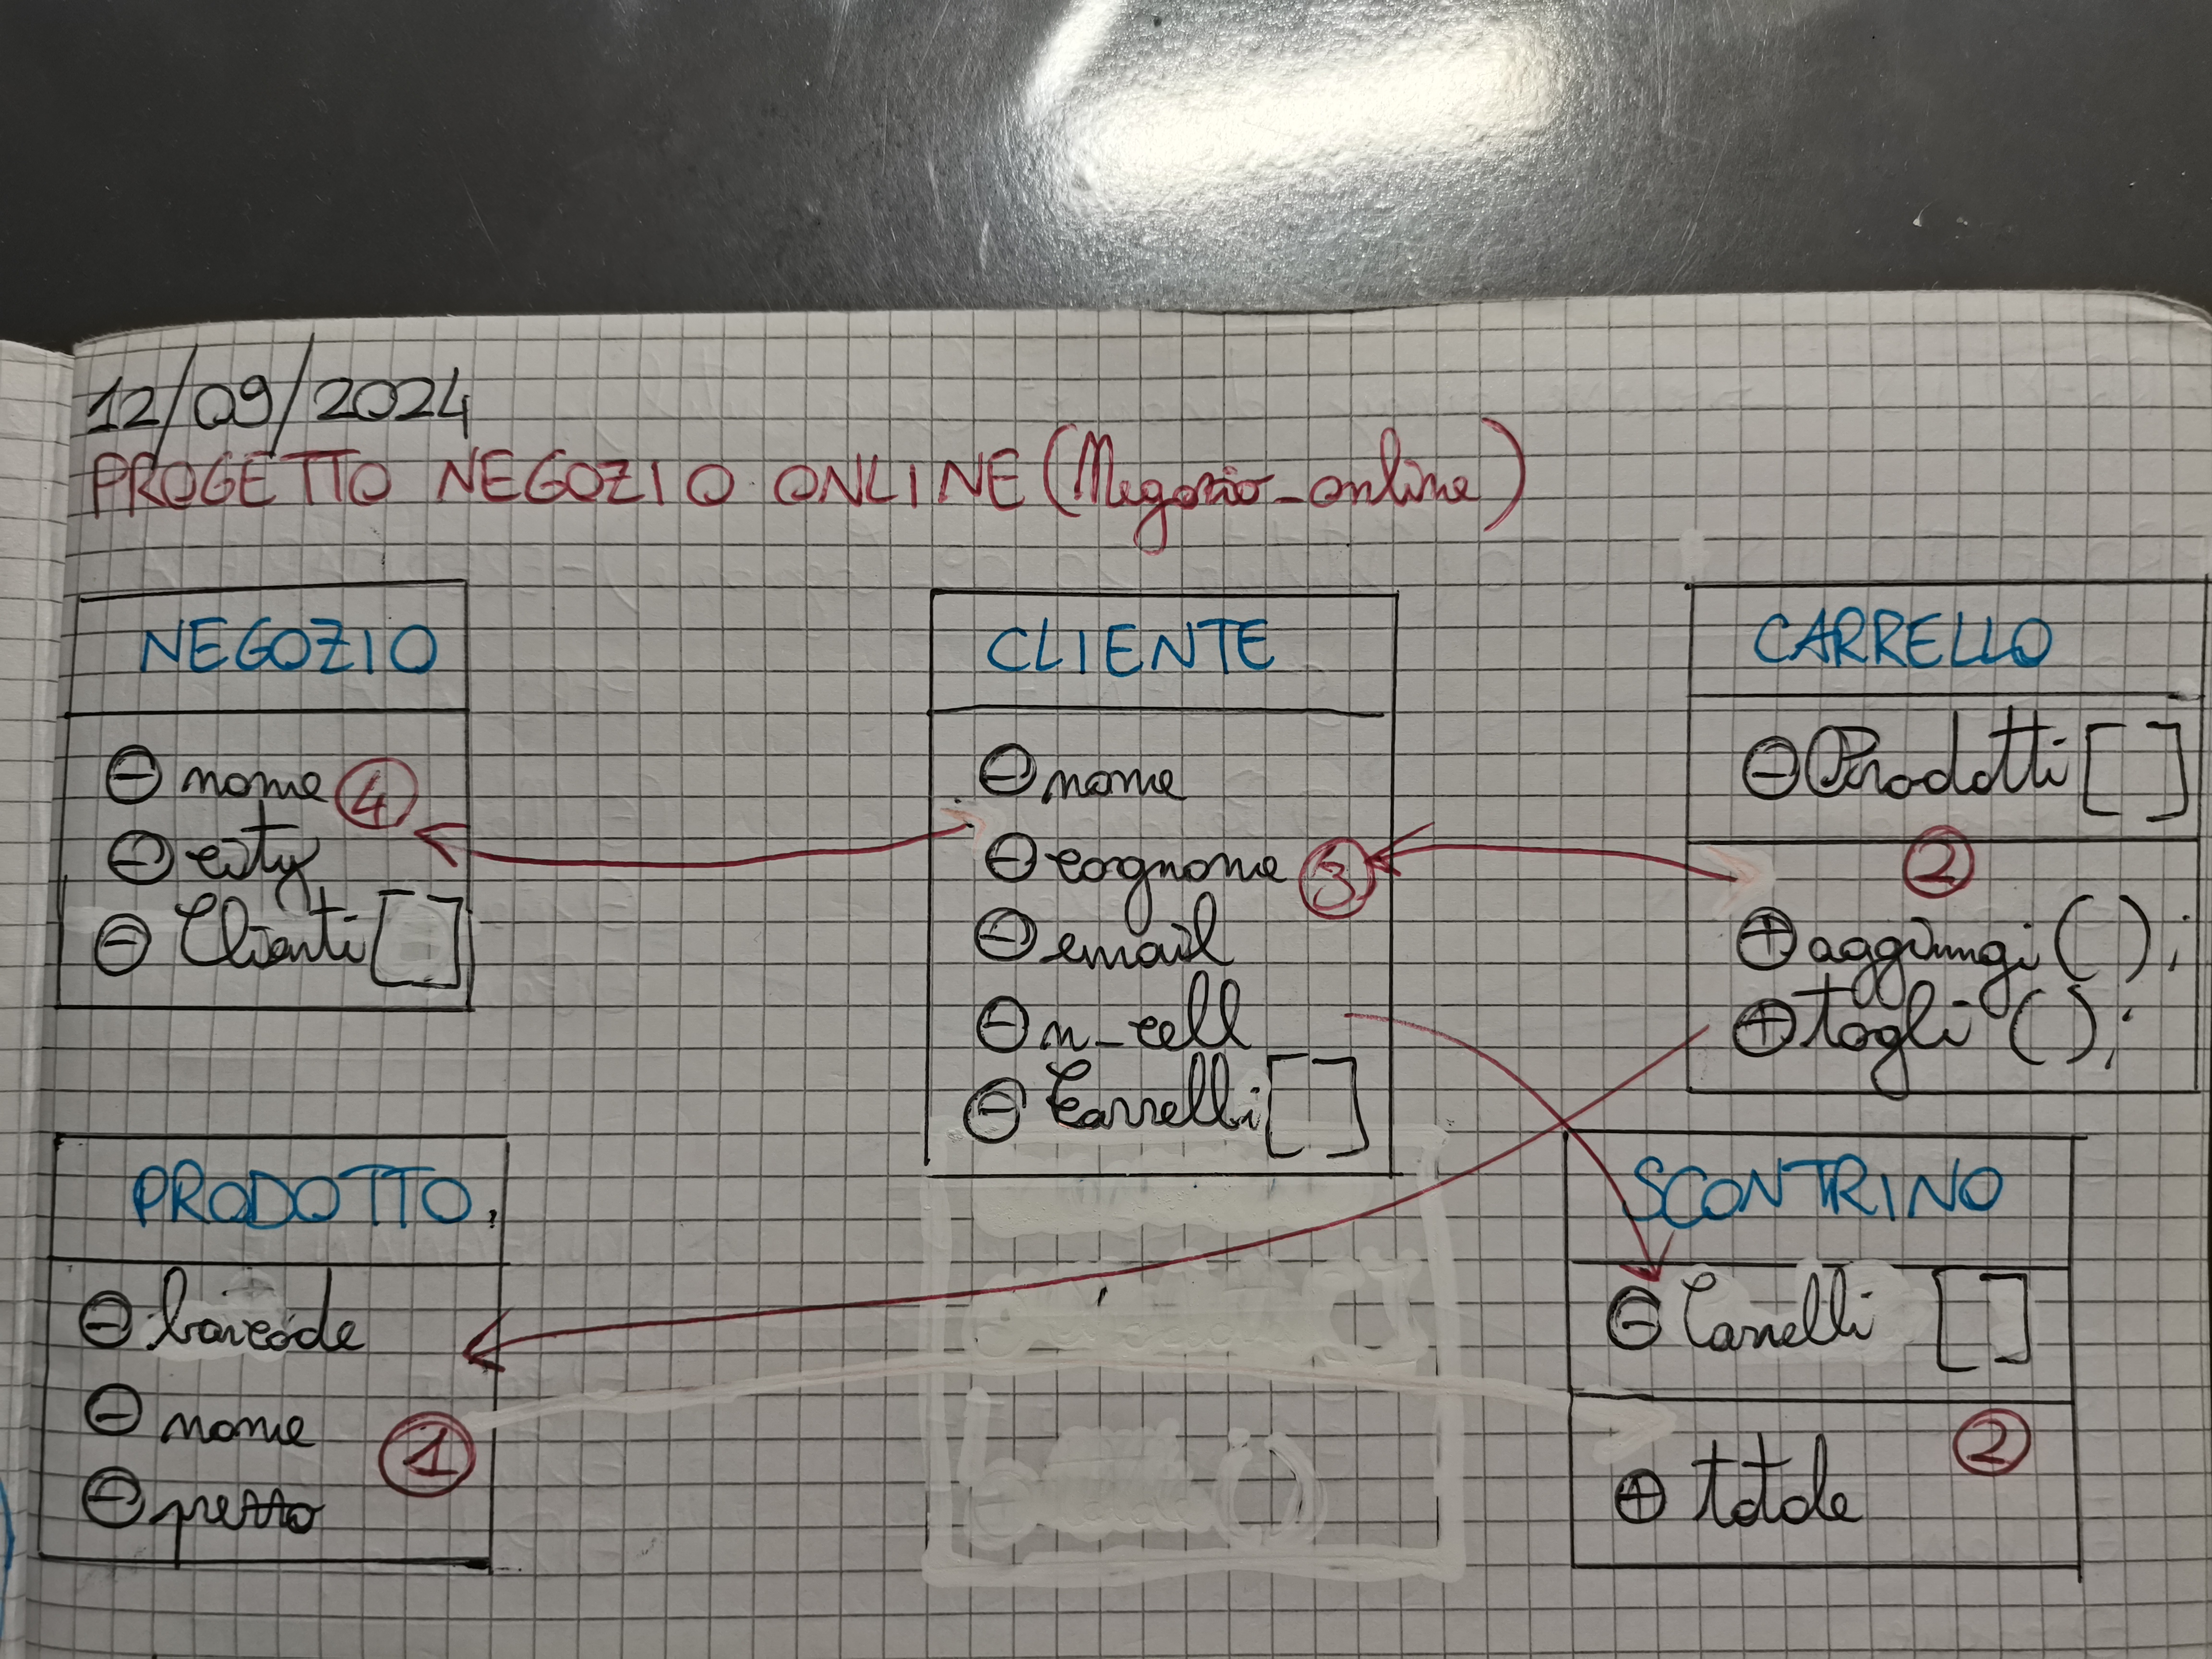 12/09/2024
PROGETTO NEGOZIO ONLINE (Negozio_online)
NEGOZIO
⊖ nome ④
⊖ city
⊖ Clienti []
CLIENTE
⊖ nome
⊖ cognome ③
⊖ email
⊖ n_cell
⊖ Carrelli []
CARRELLO
⊖ Prodotti []
②
⊕ aggiungi ();
⊕ togli ();
PRODOTTO
⊖ barcode
⊖ nome
①
⊖ prezzo
SCONTRINO
⊖ Carrelli []
②
⊕ totale